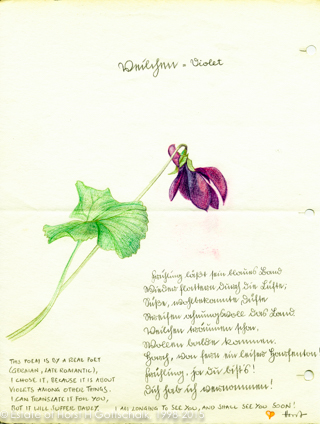 Veilchen = Violet
Frühling läßt sein blaues Band
Wieder flattern durch die Lüfte;
Süße, wohlbekannte Düfte
Streifen ahnungsvoll das Land
Veilchen träumen schon,
Wollen balde kommen.
Horch, von fern ein leiser Harfenton!
Frühling, ja du bist's!
Dich hab ich vernommen!
THIS POEM IS BY A REAL POET
(GERMAN, LATE ROMANTIC),
I CHOSE IT, BECAUSE IT IS ABOUT
VIOLETS AMONG OTHER THINGS.
I CAN TRANSLATE IT FOR YOU,
BUT IT WILL SUFFER BADLY.
I AM LONGING TO SEE YOU, AND SHALL SEE YOU SOON!
© Estate of Horst Gottschalk, 1998-2015